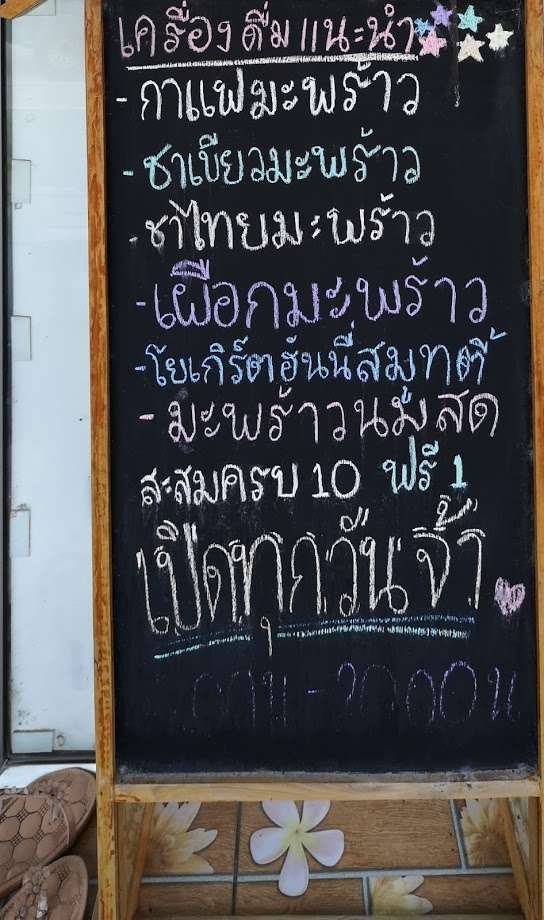 เครื่องดื่มแนะนำ
- กาแฟมะพร้าว
- ชาเขียวมะพร้าว
- ชาไทยมะพร้าว
- เผือกมะพร้าว
- โยเกิร์ตฮันนี่สมูทตี้
- มะพร้าวนมสด
สะสมครบ 10 ฟรี 1
เปิดทุกวันจ้า